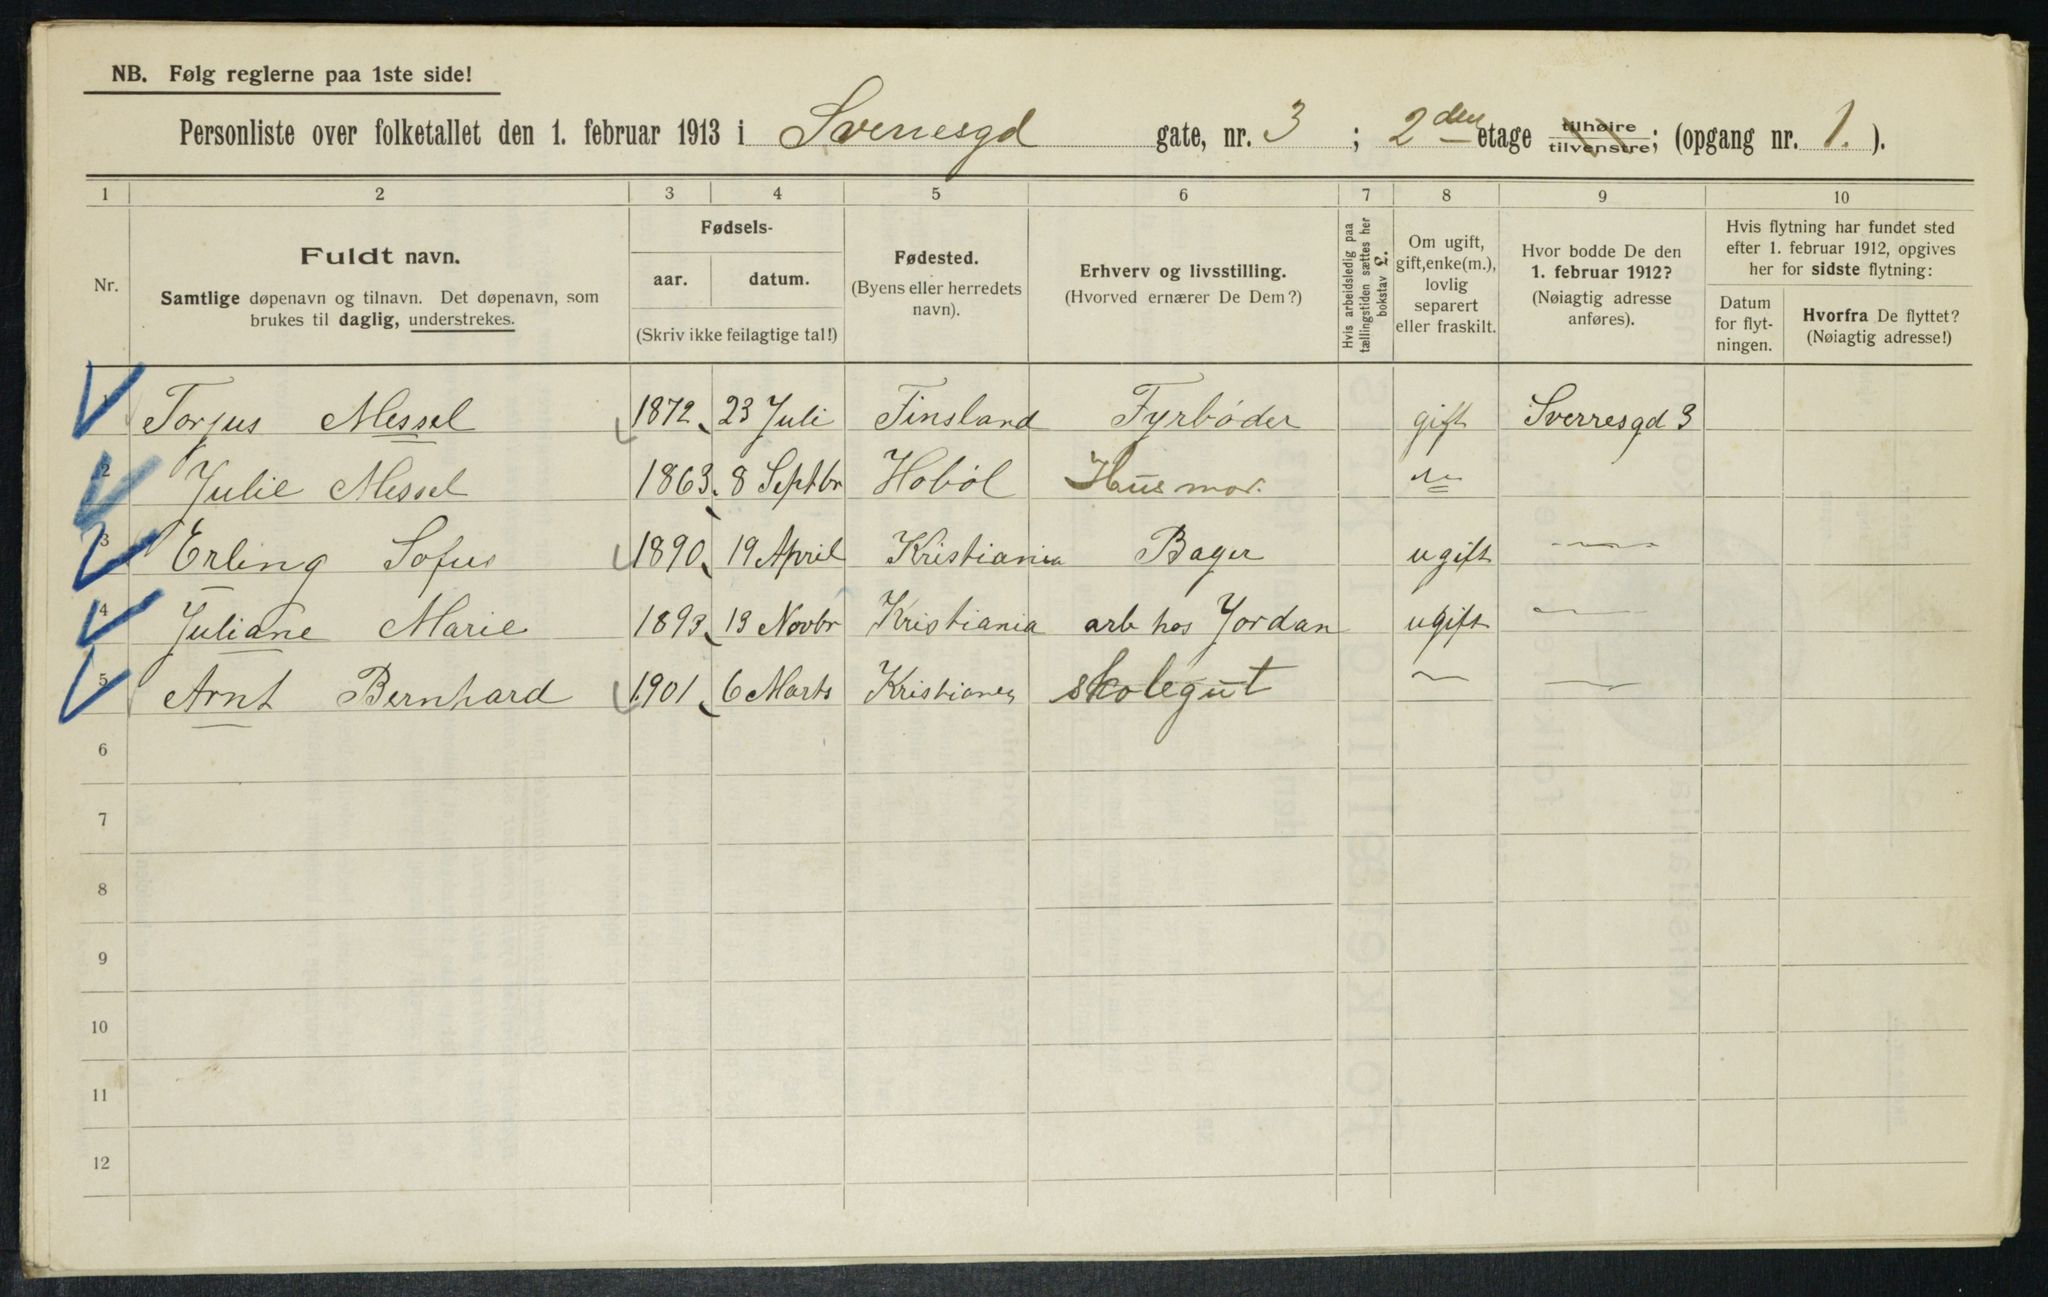 NB. Følg reglerne paa 1ste side!
Personliste over folketallet den 1. februar 1913 i Sverresgd gate, nr. 3 ; 2den etage tilhøire tilvenstre; (opgang nr. 1. ).
1 2 3 4 5 6 7 8 9 10
Nr.
Fuldt navn.
Samtlige døpenavn og tilnavn. Det døpenavn, som
brukes til daglig, understrekes.
Fødsels-
aar. datum.
(Skriv ikke feilagtige tal!)
Fødested.
(Byens eller herredets
navn).
Erhverv og livsstilling.
(Hvorved ernærer De Dem?)
Hvis arbeidsledig paa
tællingstiden sættes her
bokstav L.
Om ugift,
gift, enke(m.),
lovlig
separert
eller fraskilt.
Hvor bodde De den
1. februar 1912?
(Nøiagtig adresse
anføres).
Hvis flytning har fundet sted
efter 1. februar 1912, opgives
her for sidste flytning:
Datum
for flyt-
ningen.
Hvorfra De flyttet?
(Nøiagtig adresse!)
1 Torjus Messel 1872 23 Juli Finsland Fyrbøder gift Sverresgd 3
2 Julie Messel 1863 8 Septbr Hobøl Husmor. "
3 Erling Sofus 1890 19 April Kristiania Bager ugift —
4 Juliane Marie 1893 13 Novbr Kristiania arb hos Jordan ugift —
5 Arnt Bernhard 1901 6 Marts Kristiania skolegut — —
6
7
8
9
10
11
12